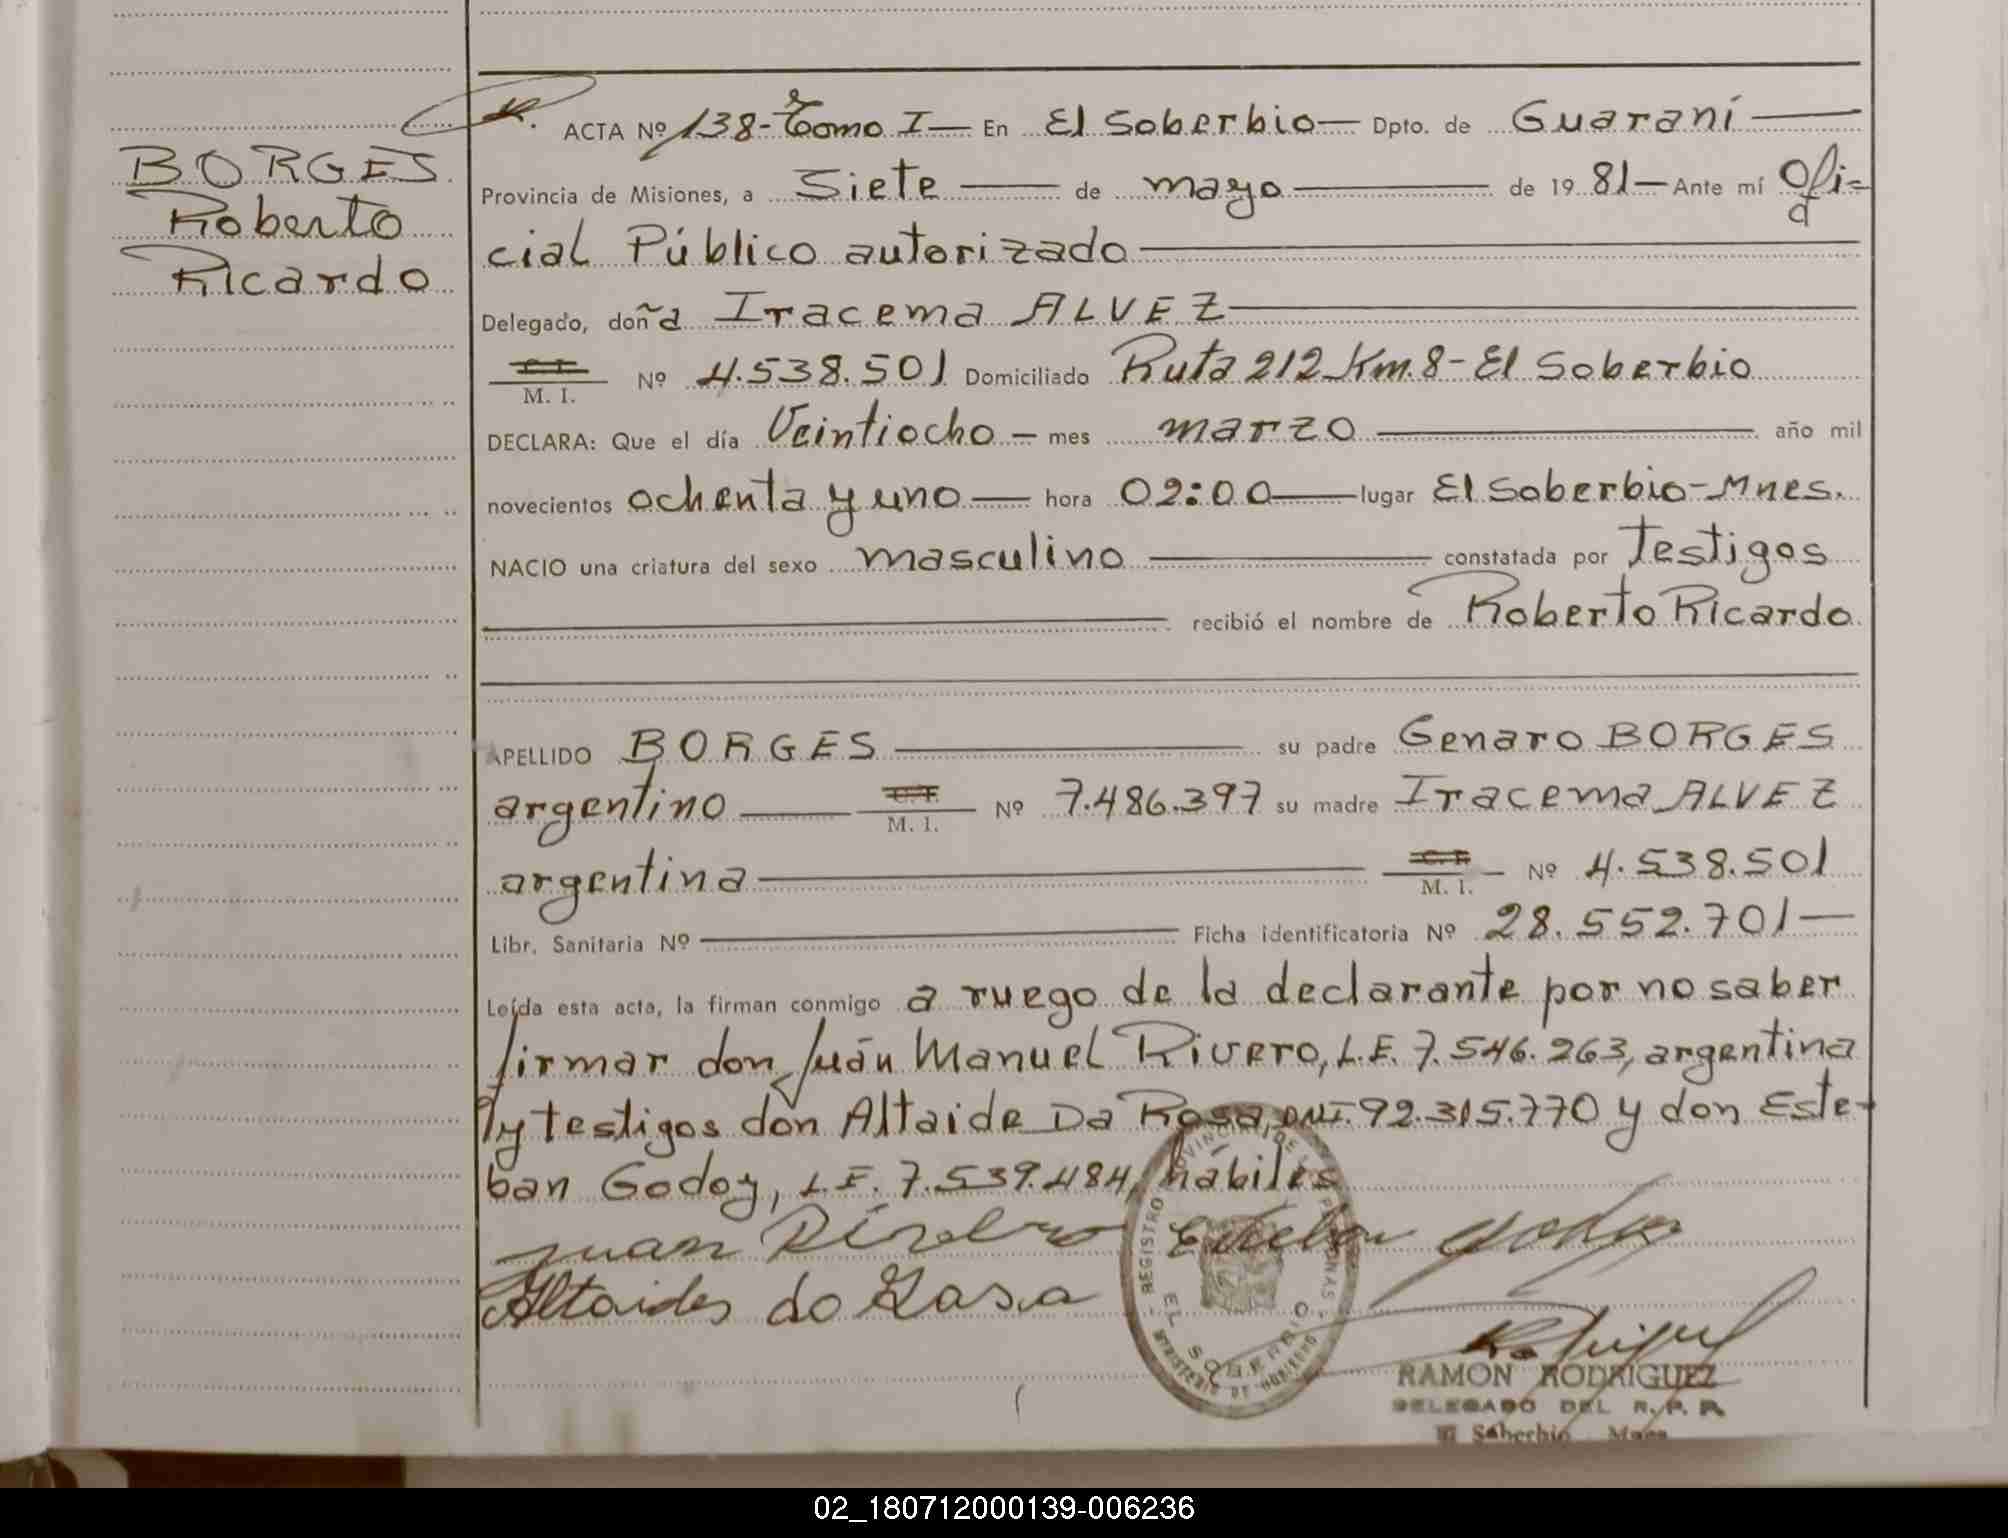 BORGES
Roberto
Ricardo
ACTA Nº 138-Tomo I— En El Soberbio— Dpto. de Guaraní—
Provincia de Misiones, a Siete — de mayo — de 19 81— Ante mí Ofi=
cial Público autorizado—
Delegado, doña Iracema ALVEZ—
C. I.
M. I. Nº 4.538.501 Domiciliado Ruta 212 Km. 8- El Soberbio
DECLARA: Que el día Veintiocho — mes marzo — año mil
novecientos ochenta y uno — hora 02:00 — lugar El Soberbio-Mnes.
NACIO una criatura del sexo masculino — constatada por Testigos
— recibió el nombre de Roberto Ricardo
APELLIDO BORGES — su padre Genaro BORGES
argentino — C. I. M. I. Nº 7.486.397 su madre Iracema ALVEZ
argentina — C. I. M. I. Nº 4.538.501
Libr. Sanitaria Nº — Ficha identificatoria Nº 28.552.701—
Leída esta acta, la firman conmigo a ruego de la declarante por no saber
firmar don Juán Manuel Rivero, L.E. 7.546.263, argentina
y testigos don Altaide Da Rosa, DNI. 92.315.770 y don Este-
ban Godoy, L.E. 7.539.484, hábiles
Juan Rivero Esteban Godoy
Altaides do Rosa
REGISTRO PROVINCIAL DE LAS PERSONAS
EL SOBERBIO
MINISTERIO DE GOBIERNO
RAMON RODRIGUEZ
DELEGADO DEL R. P. P.
El Soberbio - Mnes.
02_180712000139-006236